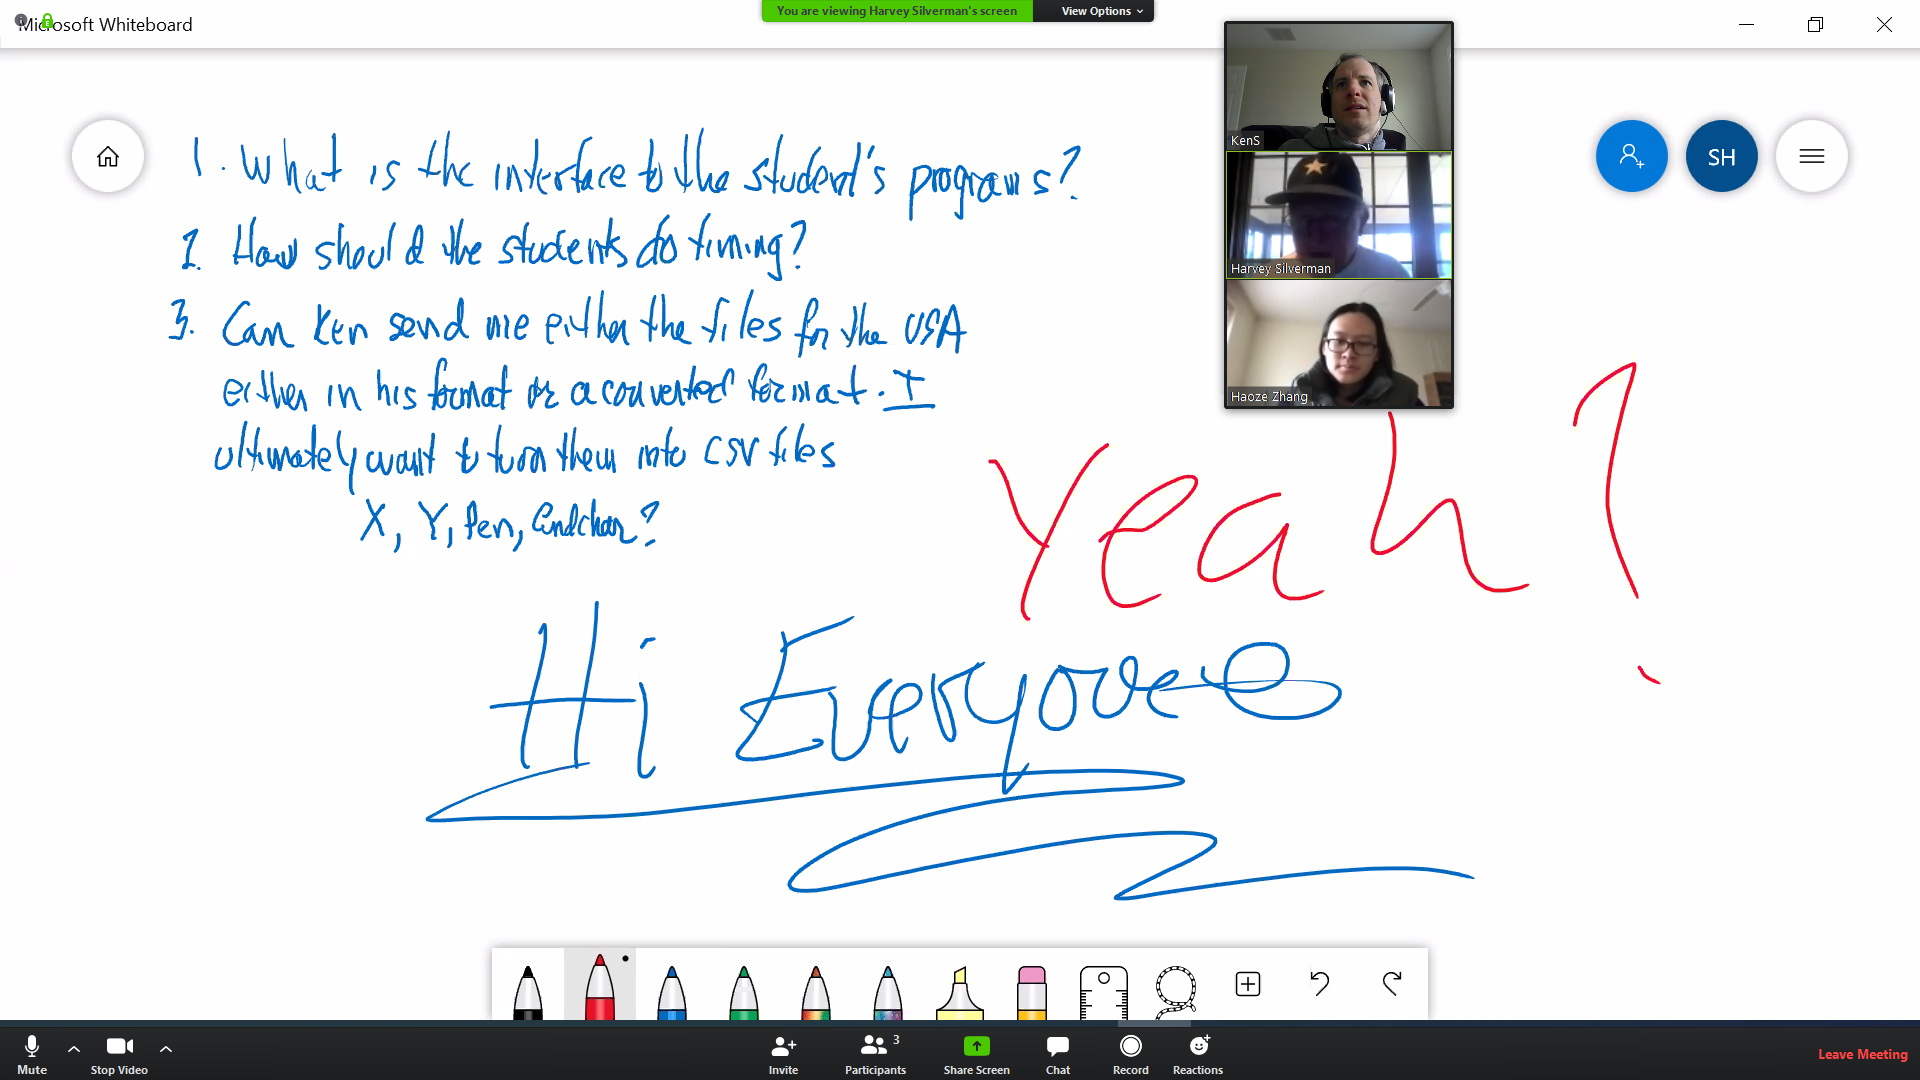 You are viewing Harvey Silverman's screen
View Options
Microsoft Whiteboard
KenS
Harvey Silverman
Haoze Zhang
SH
1. What is the interface to the student's programs?
2. How should the students do timing?
3. Can Ken send me either the files for the USA
either in his format or a converted format. I
ultimately want to turn them into CSV files
X, Y, Pen, Endchar?
Yeah?
Hi Everyone
Mute
Stop Video
Invite
Participants
3
Share Screen
Chat
Record
Reactions
Leave Meeting